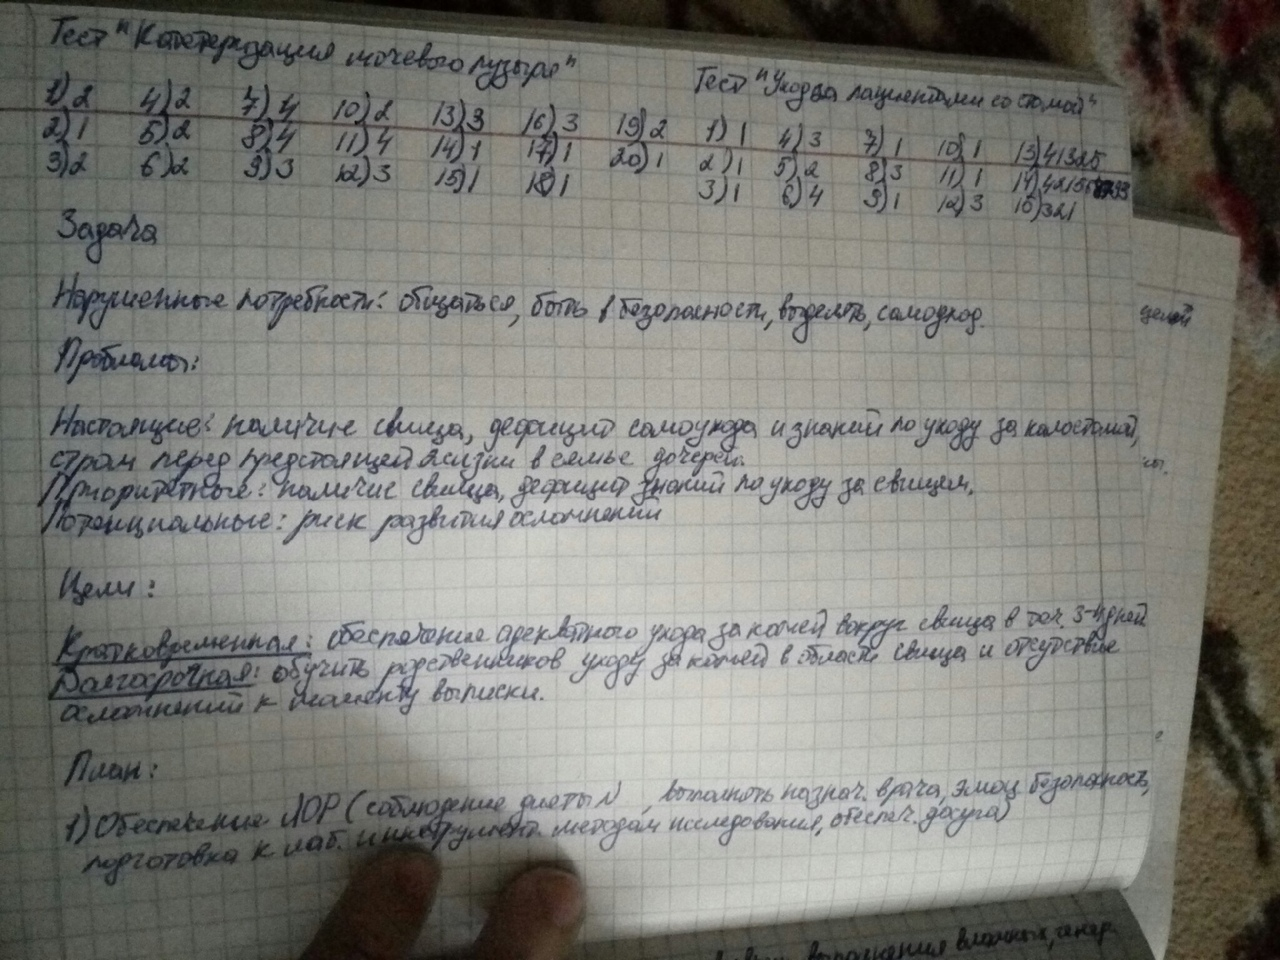 Тест "Катетеризация мочевого пузыря"
1) 2 4) 2 7) 4 10) 2 13) 3 16) 3 19) 2
2) 1 5) 2 8) 4 11) 4 14) 1 17) 1 20) 1
3) 2 6) 2 9) 3 12) 3 15) 1 18) 1
Тест "Уход за пациентами со стомой"
1) 1 4) 3 7) 1 10) 1 13) 41325
2) 1 5) 2 8) 3 11) 1 14)
3) 1 6) 4 9) 1 12) 3 15) 321
Задача
Нарушенные потребности: общаться, быть в безопасности, выделять, самоуход.
Проблемы:
Настоящие: наличие свища, дефицит самоухода и знаний по уходу за колостомой,
страх перед предстоящей жизни в семье дочерей.
Приоритетные: наличие свища, дефицит знаний по уходу за свищем.
Потенциальные: риск развития осложнений
Цели:
Кратковременная: обеспечение адекватного ухода за кожей вокруг свища в теч. 3-4 дней
Долгосрочная: обучить родственников уходу за кожей в области свища и отсутствие
осложнений к моменту выписки.
План:
1) Обеспечение ЛОР (соблюдение диеты N , выполнять назнач. врача, эмоц. безопасность,
подготовка к лаб. и инструмент. методам исследования, обеспеч. досуга)
целой
выполнения влажных, генер.